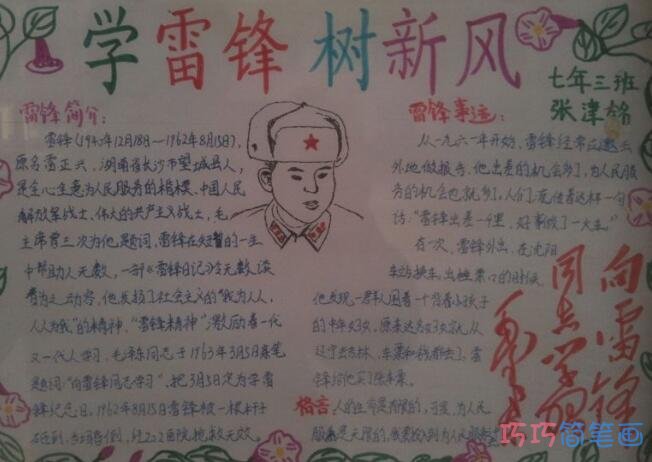 学雷锋树新风
七年三班
雷锋简介：
雷锋事迹：
雷锋（1940年12月18日—1962年8月15日），
原名雷正兴，湖南省长沙市望城县人，
是全心全意为人民服务的楷模，中国人民
解放军战士，伟大的共产主义战士，毛
主席曾三次为他题词，雷锋在短暂的一生
中帮助人无数，一部《雷锋日记》令无数读
者为之动容，他发扬了社会主义的“我为人人，
人人为我”的精神，“雷锋精神”激励着一代
又一代人学习，毛泽东同志于1963年3月5日亲笔
题词：“向雷锋同志学习”，把3月5日定为学雷
锋纪念日，1962年8月15日雷锋被一根木杆
砸到，当场昏倒，经202医院抢救无效。
从一九六一年开始，雷锋经常应邀去
外地做报告，他出差的机会多了，为人民服
务的机会也就多了，人们流传着这样一句
话：“雷锋出差一千里，好事做了一火车。”
有一次，雷锋外出，在沈阳
车站换车，出检票口的时候，
他发现一群人围着一个背着小孩子
的中年妇女，原来这名妇女就从
辽宁去吉林，车票和钱都丢了，雷
锋给她买了张车票。
格言：人的生命是有限的，可是，为人民
服务是无限的，我要投入到为人民服务中
向雷锋
同志学习
毛泽东
巧巧简笔画